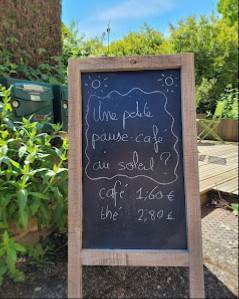 Une petite
pause-café
au soleil ?
café 1,60 €
thé 2,80 €